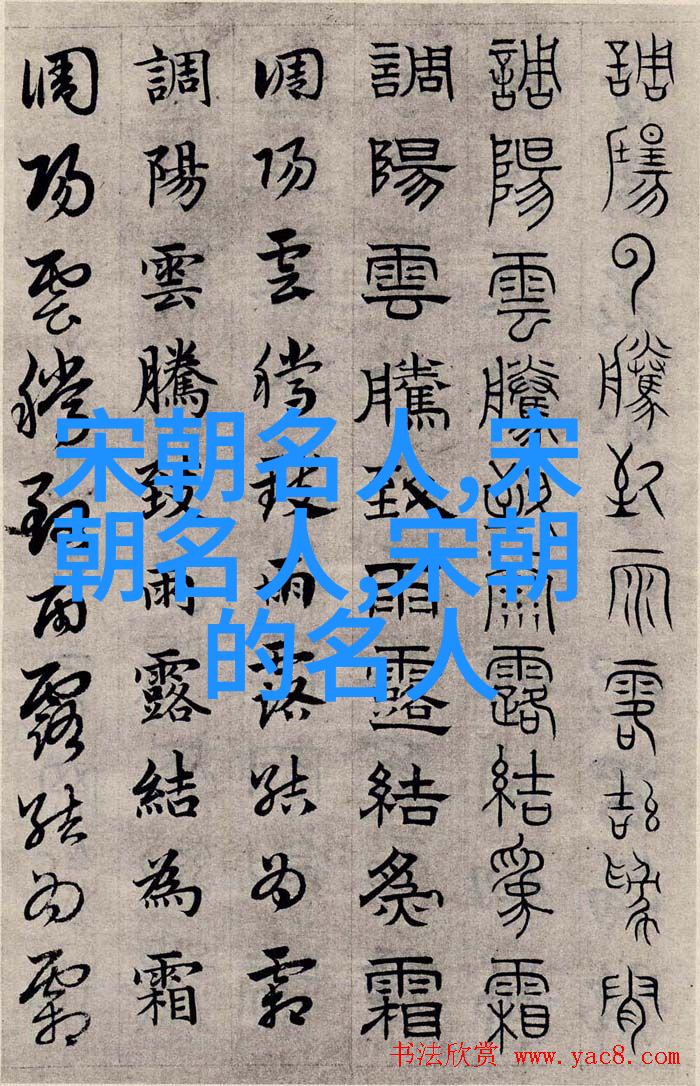 調陽雲騰致雨露結為霜
調陽雲騰致雨露結為霜
調陽雲騰致雨露結為霜
調陽雲騰致雨露結為霜
調陽雲騰致雨露結為霜
調陽雲騰致雨露結為霜
宋朝名人,宋
朝名人,宋朝
的名人
书法欣赏 www.yac8.com